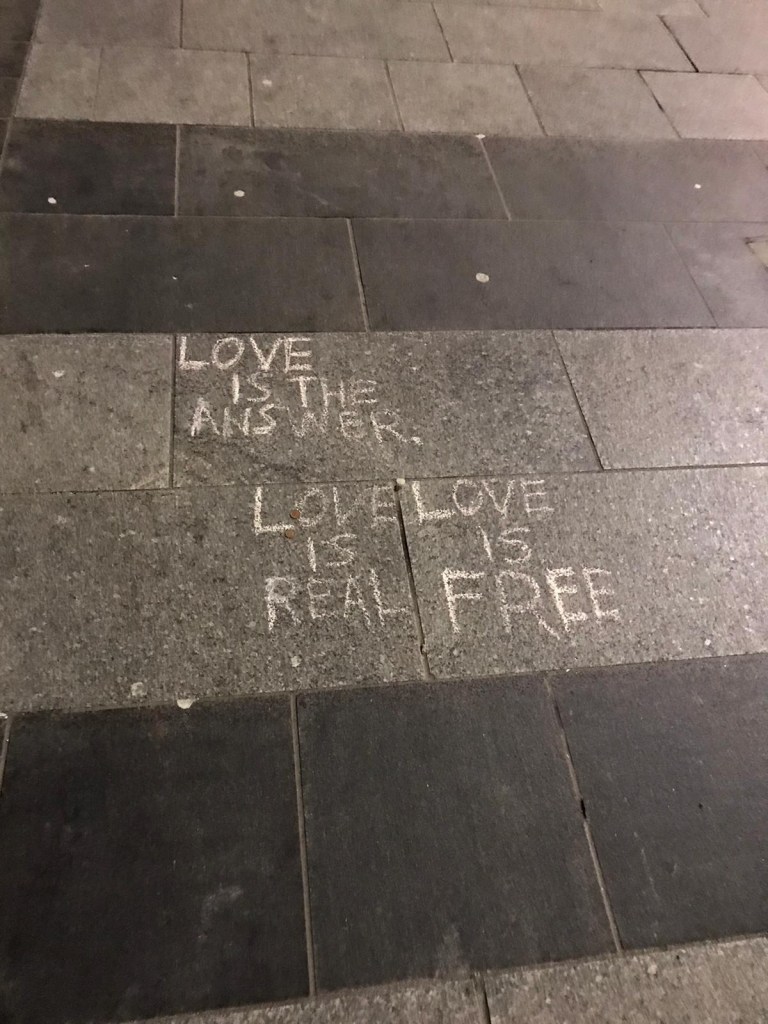 LOVE
IS THE
ANSWER.
LOVE
IS
REAL
LOVE
IS
FREE